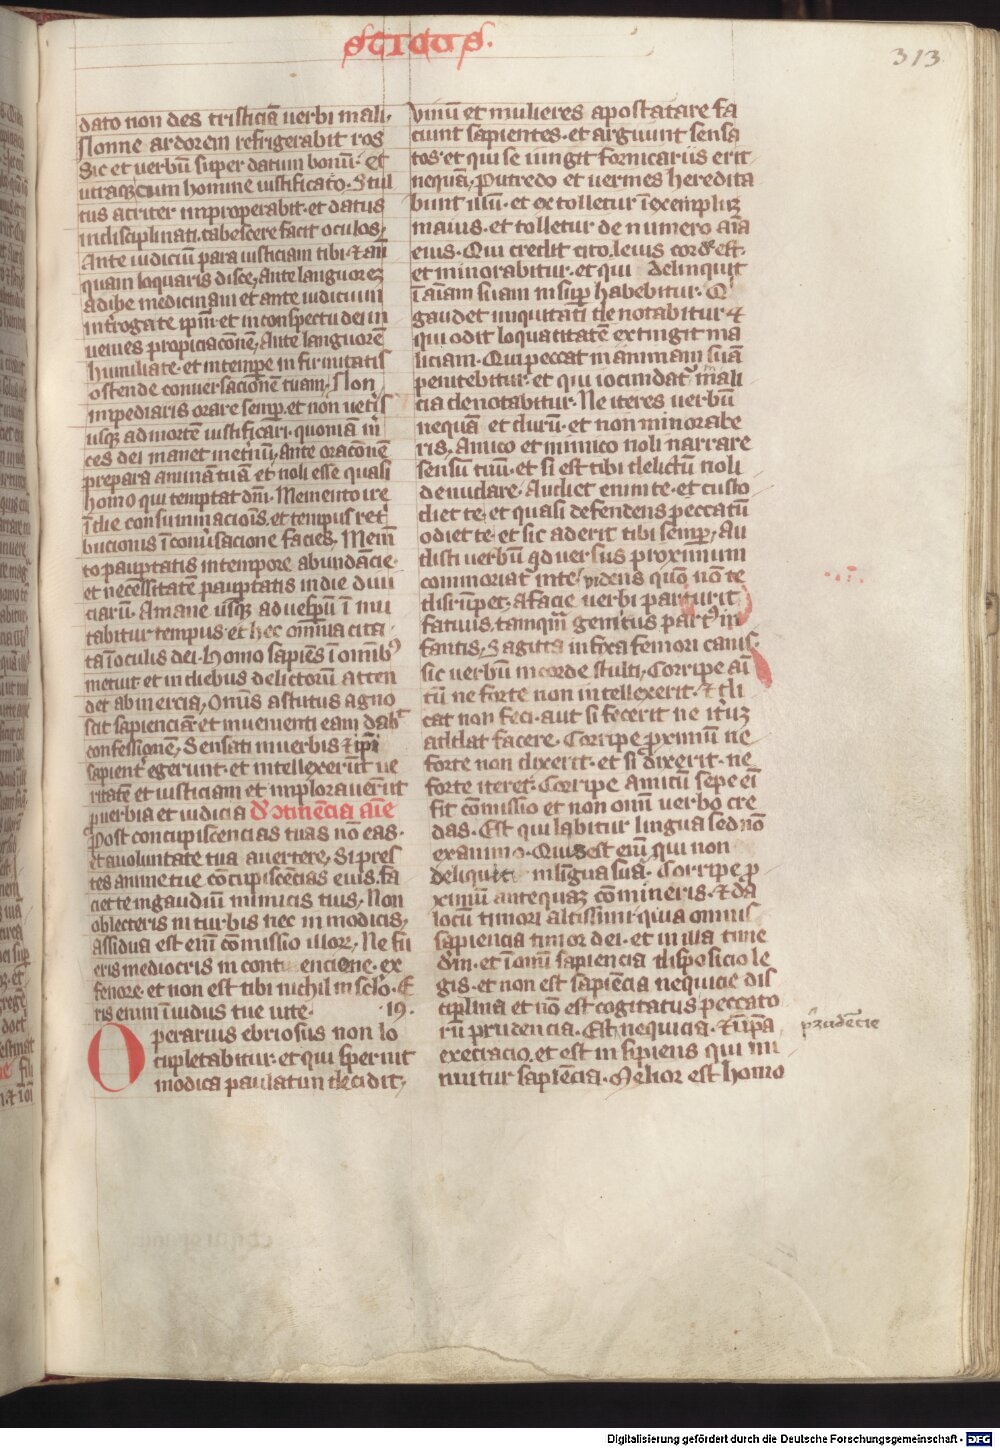 sticus.
313
dato non des tristiciā uerbi mali,
Nonne ardorem refrigerabit ros
Sic et uerbū super datum bonū· Et
utraqꝫ cum homine iustificato· Stul
tus acriter improperabit· et datus
indisciplinati tabescere facit oculos,
Ante iudiciū para iusticiam tibi· ⁊ an̄
quam loquaris disce, Ante languorez
adibe medicinam et ante iudicium
interrogate ip̄m· et in conspectu dei in
uenies propiciacōnē, Ante languorē
humiliate· et intempe in firmitatis
ostende conuersacōnē tuam, Non
impediaris orare semꝑ· et non uet̄is
usqꝫ ad mortē iustificari· quoniā m̄
ces dei manet inetnū, Ante oracōnē
prepara animā tuā et noli esse quasi
homo qui temptat dm̄· Memento ire
ī die consummacioīs et tempus ret'
bucionis ī conuisacione faciei, Mem̄
to pauptatis intempore abundācie·
et necessitatē pauptatis in die diui
ciarū· A mane usqꝫ ad uesꝑū ī mu
tabitur tempus· et hec omīa cita·
ta ī oculis dei· homo sapiēs ī omībꝰ
metuit et in diebus delictorū atten
det ab inercia, Omīs astutus agno
scit sapienciā· et inuenienti eam dab'
confessionē, Sensati inuerbis ⁊ ip̄i
sapient' egerunt· et intellexerūt ue
ritatē et iusticiam et implorauerūt
ꝓuerbia et iudicia D' ↄtinēcia aīe
Post concupiscencias tuas nō eas·
et auoluntate tua auertere, Si pres
tes anime tue cōcupiscēcias eius· fa
ciet te in gaudiū inimicis tuis, Non
oblecteris in turbis nec in modicis,
assidua est eni cōmissio illorꝫ, Ne fu
eris mediocris in contencione· ex
fenore· et non est tibi nichil in sc̄lo· E
ris enim ī uidus tue uite· ·19·
Operarius ebriosus non lo
cupletabitur· et qui spernit
modica paulatim decidit,
vinū et mulieres apostatare fa
ciunt sapientes· et arguunt sensa
tos· et qui se iungit fornicariis erit
nequā, Putredo et uermes heredita
bunt illū· et ex tolletur ī exemplūꝫ
maius· et tolletur de numero aīa
eius· Qui credit cito· leuis corde est·
et minorabitur· et qui delinquit
ī aīam suam insuꝑ habebitur· Q'
gaudet iniquitati denotabitur· ⁊
qui odit loquacitatē extingit ma
liciam· Qui peccat in animam suā
penitebitur· et qui iocundat' ī mali
cia denotabitur· Ne iteres uerbū
nequā et durū· et non minorabe
ris, Amico et inimico noli narrare
sensū tuū· et si est tibi delictū noli
denudare, Audiet enim te· et custo
diet te· et quasi defendens peccatū
odiet te· et sic aderit tibi semꝑ, Au
disti uerbū aduersus proximum
commoriat' inte, videns quō nō te
disrūpet, A facie uerbi parturit
fatuus, tamqm̄ gemitus partꝰ in
fantis, Sagitta infixa femori canis·
sic uerbū in corde stulti, Corripe ami
cū ne forte non intellexerit· ⁊ di
cat non feci· aut si fecerit ne it'uꝫ
addat facere· Corripe proximū ne
forte non dixerit· et si dixerit· ne
forte iteret· Corripe amicū sepe eī
fit cōmissio et non omī uerbo cre
das· Est qui labitur lingua sed nō
ex animo· Quis est enī qui non
deliquit in lingua sua· Corripe ꝓ
ximū antequaꝫ cōmineris· et da
locū timori altissimi· quia omnis
sapiencia timor dei· et in illa time
dm̄· et ī omī sapiencia disposicio le
gis· et non est sapiēcia nequicie dis
ciplina et nō est cogitatus peccato
rū prudencia· Est nequicia· ⁊ ī ip̄a
execracio· et est insipiens qui mi
nuitur sapiēcia· Melior est homo
prudēcie
Digitalisierung gefördert durch die Deutsche Forschungsgemeinschaft - DFG